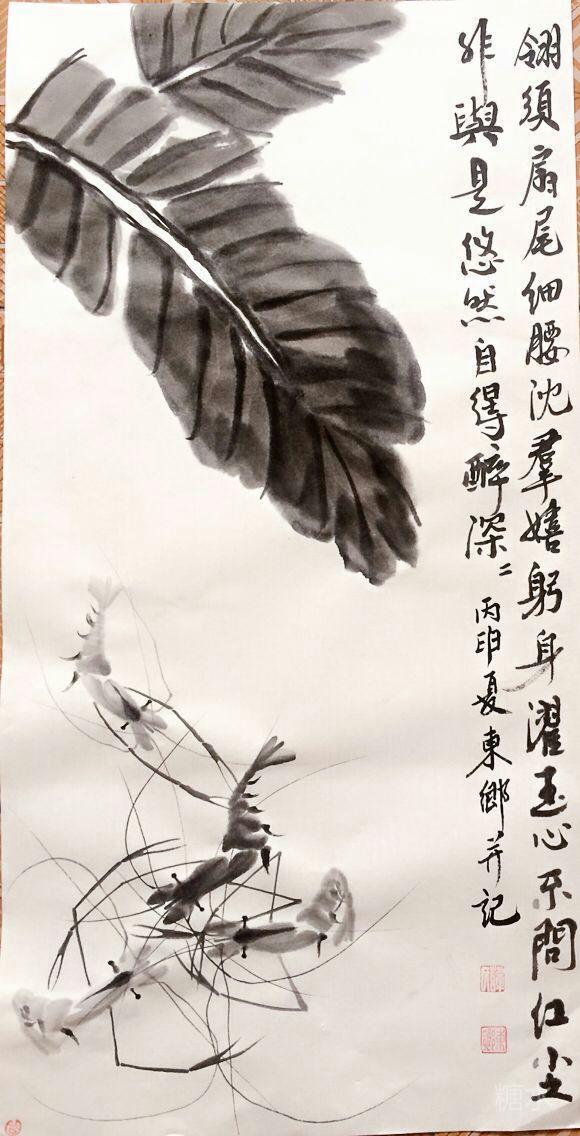 翎须扇尾细腰沈羣嬉躬身濯玉心不問红尘
非與是悠然自得醉深〻
丙申夏東鄉并記